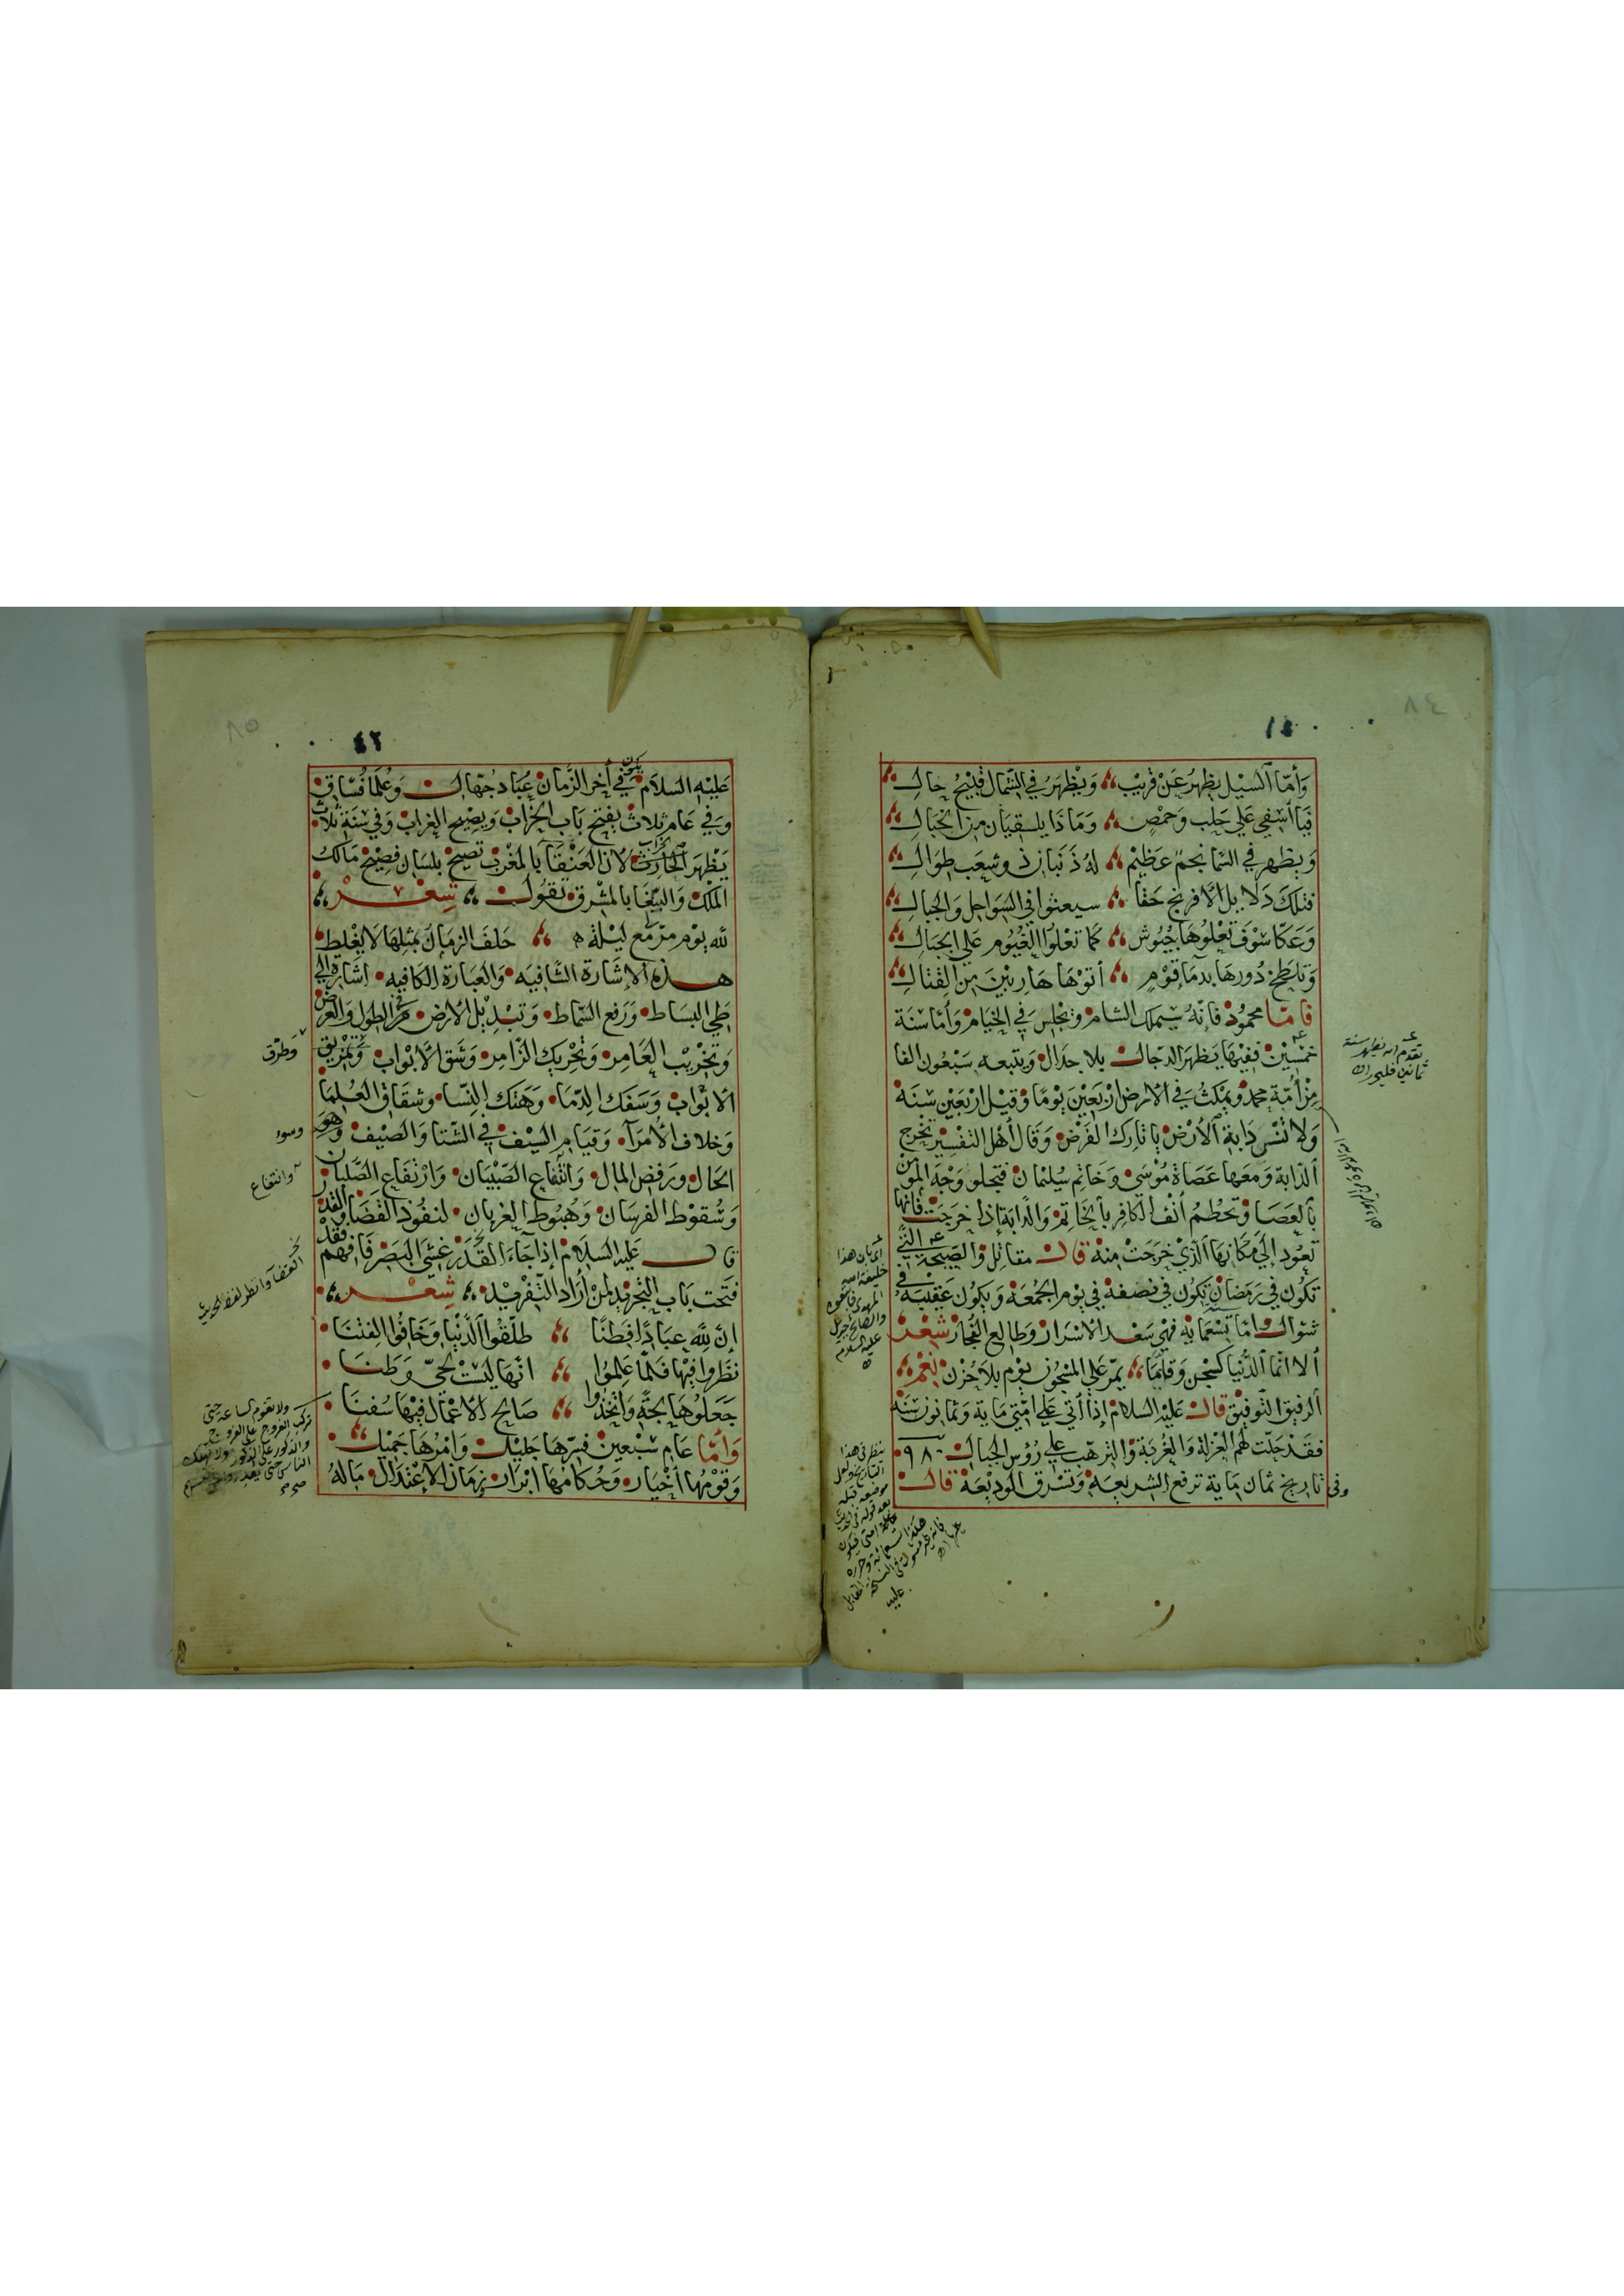 وَأمّا السَّيْل يظهرُ عَنْ قريْب وَيظْهَرُ فِي الشّمال قبِيْحُ حال
فيَا أسَفِي عَلي حَلَب وَحَمْصٍ وَمَاذَا يلـقيَان مِنَ الخبَال
وَيظهر في السّما نجمٌ عَظيْم لهُ ذَنبٌ وشعَب طِوَال
فتلكَ دَلايل الأفرنج حَقا سيعثوا في السّوَاحِل وَالجبال
وَعَكّا سَوْف تَعْلُوهَا جُيُوش كَما تعْلُوا الغيُوم عَلي الجبَال
وَتلطخ دُورهَا بدمَا قوْمٍ أتوْهَا هَاربيْنَ مِن القتال
فامّا محمُوْد فانّهُ سيملك الشام وَيجْلِسَ فِي الخيَام وَأمّا سَنَة
خمْسِيْن ففيْهَا يَظهَر الدّجال بلا جدَال وَيتبعه سَبْعُون الفا
مِنْ أمّة محمد وَيمْكثُ فِي الأرض أرْبَعيْنَ يَوْمًا وَقيْل ارْبَعين سَنَة
وَلا تنْسَ دَابة الأرْض يا تارك الفَرْض وَقال أهْل التفسِيْر يخرج
الدّابة وَمعَها عَصَاة مُوْسَى وَخاتم سُليْمان فتجلو وَجْهَ المُؤْمن
بالعَصَا وَتحْطمُ أنْفَ الكافِر بالخاتِم وَالدّابَة إذا خَرَجَتْ فانّها
تعُود إلَي مَكانهَا الّذِيْ خَرَجَتْ مِنْهُ قال مقاتِل وَالصّيحة الّتي
تكوْن فِي رَمَضان تكوْن في نصْفه فِي يوْم الجُمُعَة وَيكوُن عَقيْبَهُ فِي
شوال وَامّا تِسْعمايه فهْي سَعْد الاسْرَار وَطالِع الفُجّار شِعْر
ألا انّما الدُّنيَا كسِجْن وَقلّمَا يمّر عَلي المسْجُوْن يوْم بلا حُزْن نِعْمَ
الرفيْق التّوفيْق قال عَليْه السلام إذا أتي عَلي أمّتي مَاية وَثمانون سَنَة
فقَدْ حَلّت لَهُم العُزْلة وَالغُرْبَة وَالترهّب علي رُؤسِ الجبال ٩٨٠
وفي تاريخ ثمان مَاية ترفع الشريعَة وَتسْرق الوَديْعَة قال
تقدم انه يظهر سنة
ثمانين فليحرر اه
٤٢
عَليْه السلاَم يكون في أخر الزَّمان عُبّاد جُهّال وَعُلمَا فُسّاق
وَفي عَام ثلاث يفتح بَاب الخرَاب وَيصِيْح الغرَاب وَفي سَنة ثلاث
يَظْهرَ الحَارث لان العَنْقَاء بالمَغْرب تصِيح بلسَان فصِيْح مَالك
الملك وَالببّغَا بالمشْرق تقوُل شِعْر
لله يوْم مرّ مَع ليْلة حَلفَ الزمَان بمثلِهَا لا يغْلط
هذه الإشَارة الشَّافِيَه وَالعبَارة الكافيه اشَارة إلي
طي البسَاط وَرَفع السّماط وَتبْديْل الأرض في الطول وَالعرض
وَتخْريْب العَامِر وَتحْريك الزّامِر وَشق الأبْواب وَتمْزيْق
الأثْوَاب وَسَفك الدّمَاء وَهَتك النِّسَا وشقاق العُلمَا
وَخلاف الأمَراء وَقيَام السّيْف فِي الشّتا وَالصّيْف وَهَوْن
الحَال وَرَفض المال وَانتْفَاع الصّبيَان وَارْتفاع الصُّلبَان
وَسُقوْط الفرسَان وَهُبُوْط الغربان لنفوُذ القَضَا وَالقدر
قال عَليه السلام إذا جَاءَ القَدَر عَشيَ البَصَر فَافهم فقدْ
فتحت بَاب التّجريْد لمنْ أرَاد التّفريْد شِعْر
إنّ للهِ عبَادًا فِطَنَا طلّقوُا الدُّنْيا وَخافُوا الفِتَنَا
نَظروا فِيْها فلمّا عَلِموُا انّهَا ليْسَتْ لحيّ وَطنَا
جَعَلوُهَا لجّةً وَاتّخذُوا صَالح الأعْمَال فِيْهَا سُفنَا
وَأمّا عَام سَبْعين فسِرّهَا جَليْل وَامْرُهَا جَميْل
وَقوْمُها أخْيَار وَحُكامُهَا ابْرَار زمَان الإعْتدَال مَالهُ
وطرق
وسوء
وانتفاع
ولا تقوم الساعة حتى
تركب الفروج على الفروج